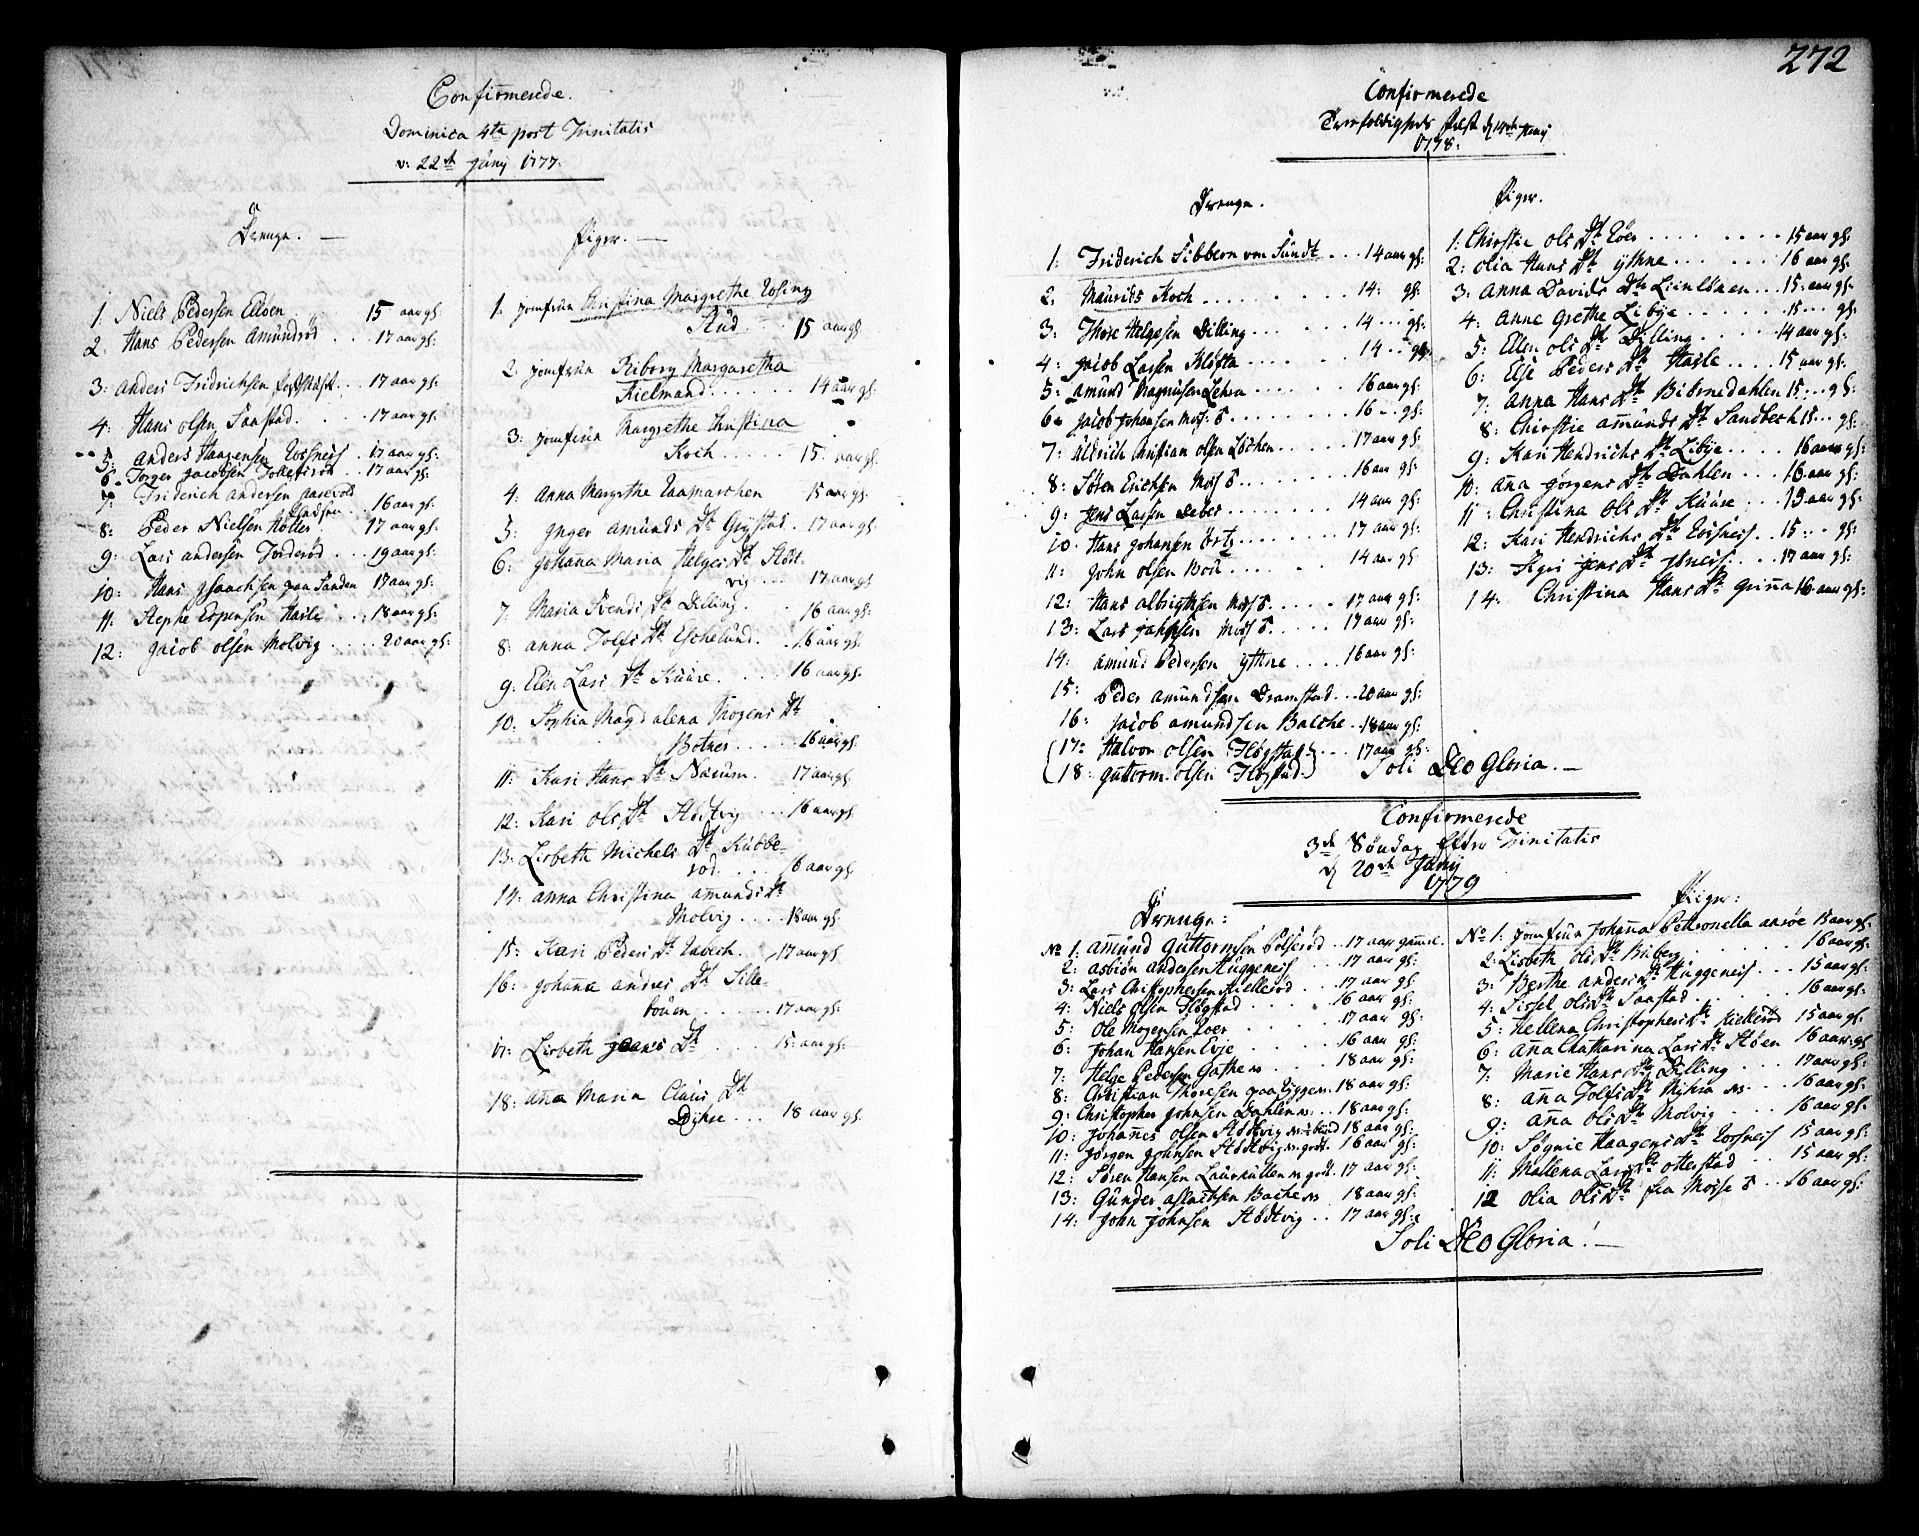 Confirmerede.
Dominica 4ta post Trinitatis
d: 22de Junij 1777.
Drenge. —
1. Niels Pedersen Elloen . 15 aar gl:
2. Hans Pedersen Amundrød . . . 17 aar gl:
3: Anders Fridrichsen . . 17 aar gl:
4: Hans Olsen Saastad. . . . 17 aar gl:
5: Anders Haagensen Rosness . 17 aar gl:
6. Torger Jacobsen . 17 aar gl:
7: Friderich Andersen
16 aar gl:
8: Peder Nielsen Kolles 17 aar gl:
9: Lars Andersen Torderød . . . 19 aar gl:
10: Hans Isaachsen paa Sanden 17 aar gl:
11. Stephe Espensen Hasle . . . 18 aar gl:
12: Jacob Olsen Molvig . . . . . 20 aar gl:
Piger. —
1. Jomfrue Christina Margrethe Rosing
Rud . . . 15 aar gl:
2. Jomfrue Riborg Margaretha
Kielmand . . . . . . 14 aar gl:
3: Jomfrue Margrethe Christina
Koch . . . . . 15. aar gl:
4: Anna Margrethe Raamarchen 15 aar gl:
5: Inger Amunds Dr Grystad . . 17 aar gl:
6: Johanna Maria Helges Dr Stødt-
vig . . . . 17 aar gl:
7: Maria Svends Dr Dilling . . 16 aar gl:
8: Anna Tolfs Dr Eskelund . . 16 aar gl:
9: Elen Lars Dr Kuure . . . . . 16 aar gl:
10. Sophia Magdalena Mogens Dr
Botner . . . . . 16 aar gl:
11: Kari Hans Dr Næsum. . . 17 aar gl:
12: Kari Ols Dr Stødtvig . . . 16 aar gl
13: Lisbeth Michels Dr Kubbe-
rød. . . . . 16 aar gl:
14: Anna Christina Amunds Dr
Molvig . . . . . 18 aar gl:
15: Kari Peders Dr Rabech. . . 17 aar gl:
16: Johanne Andres Dr Sille-
bouen . . . . . . 17 aar gl:
17: Lisbeth Dr . . . . . 15: aar gl:
18: Anna Maria Claus Dr
Dijhre . . . 18 aar gl:
272
Confirmerede
Treefoldigheds Fest d 14de Junij
1778:
Drenge.
1: Friderich Sibbern von Sundt . . . 14 aar gl:
2. Maurids Koch . . . . . . . 14: gl:
3: Thore Helgesen Dilling . . . . . 14 . . . gl:
4: Jacob Larsen Kløsta . . . . . . 14 . . gl:
5: Amund Magnusen Lehra . . . 16 aar gl:
6. Jacob Johansen Moss: . . . 16 - . gl:
7: Uldrich Christian Olsen Løchen . . 17 aar gl:
8: Søren Erichsen Moss . . . 16 aar gl:
9: Jens Larsen . . . 14 aar gl:
10. Hans Johansen Ørtz . . . . . 17 aar gl:
11: John Olsen Boe . . . . . 14 aar gl:
12: Hans Albrigthsen Moss . . . 17 aar gl:
13: Lars Moss . . . . 17 aar gl:
14: Amund Pedersen Ythne . . . . 16 aar gl:
15: Peder Amundsen Dramstad . . 20 aar gl:
16: Jacob Amundsen Balche . . 18 aar gl:
(17: Halvor Olsen Fløgstad) . . . 17 aar gl:
(18: Guttorm Olsen Fløgstad.)
Piger.
1: Chirstie Ols Dr Røer . . . . . . . . 15 aar gl:
2: Olia Hans Dr Ythne . . . . . . 16 aar gl:
3: Anna Davids Dr . . . 15: aar gl:
4: Anne Grethe Libije . . . . . . 15 . . . gl:
5: Ellen Ols Dr Dilling . . . 14 aar gl:
6: Else Peders Dr Hasle . . . . 15 aar gl:
7: Anna Hans Dr Biørnedahlen 15 . . . gl:
8: Chirstie Amunds Dr Sandbech 15 . . gl:
9: Kari Hendrichs Dr Libije . . . . . 16 aar gl:
10: Ana Jørgens Dr Dahlen . . . 16 aar gl:
11: Christina Ols Dr Kuure . . . 15 aar gl:
12: Kari Hendrichs Dr Rosness . . 15 . . . gl:
13: Sigri Jens Dr . . . 17 aar gl:
14: Christina Hans Dr Grinna 16 aar gl:
Soli Deo Gloria. —
Confirmerede
3de Søndag Efter Trinitatis
d 20de Junij
1779
Drenge:
No 1: Amund Guttormsen Pølserød . . 17 aar gamel.
2: Asbiøn Andersen Huggeness . . . 17 aar gl:
3: Lars Christophersen Kiellerød . . . 17 aar gl:
4: Niels Olsen Fløgstad . . 16 aar gl:
5: Ole Mogensen Roer . . . . . . 17 aar gl:
6: Johan Hansen Evje . . . . . 16 aar gl:
7: Helge Pedersen Gathe . . . 18 aar gl:
8: Christian Thoresen paa Ryggen . 18 aar gl:
9: Christopher Johnsen Dahlen . . . 18 aar gl:
10: Johannes Olsen Stødtvig 18 aar gl:
11: Jørgen Johnsen Stødtvig 16 aar gl:
12: Søren Hansen Laurkullen 17 aar gl:
13: Gunder Aslachsen Bache 18 aar gl:
14: John Johnsen Stødtvig . . . 17 aar gl:
Piger:
No 1: Jomfrue Johanna Petronella Aaroe 15 aar gl:
2: Lisbeth Ols Dr . . . 16 aar gl:
3: Berthe Anders Dr Huggeness . . . 15 aar gl:
4: Sissel Ols Dr Saastad . . . . 16 aar gl:
5: Hellena Christophers Dr Kiellerød 15 aar gl:
6: Ana Chatharina Lars Dr Støen 16 aar: gl
7: Marie Hans Dr Dilling . . . 17 aar gl:
8: Ana Tolfs Dr . . . 16 aar gl:
9: Ana Ols Dr Molvig . . . . 16 aar gl:
10: Søgnie Haagens Dr Rosness 15 aar gl:
11: Mallena Lars Dr Otterstad . . 15 aar gl:
12 Olia Ols Dr fra Mosse . . 16 aar gl:
Soli Deo Gloria! —